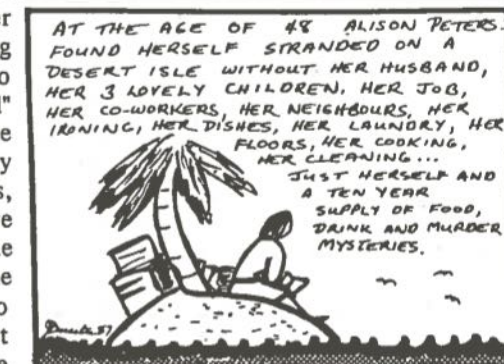 AT THE AGE OF 48 ALISON PETERS
FOUND HERSELF STRANDED ON A
DESERT ISLE WITHOUT HER HUSBAND,
HER 3 LOVELY CHILDREN, HER JOB,
HER CO-WORKERS, HER NEIGHBOURS, HER
IRONING, HER DISHES, HER LAUNDRY, HER
FLOORS, HER COOKING,
HER CLEANING...
JUST HERSELF AND
A TEN YEAR
SUPPLY OF FOOD,
DRINK AND MURDER
MYSTERIES.